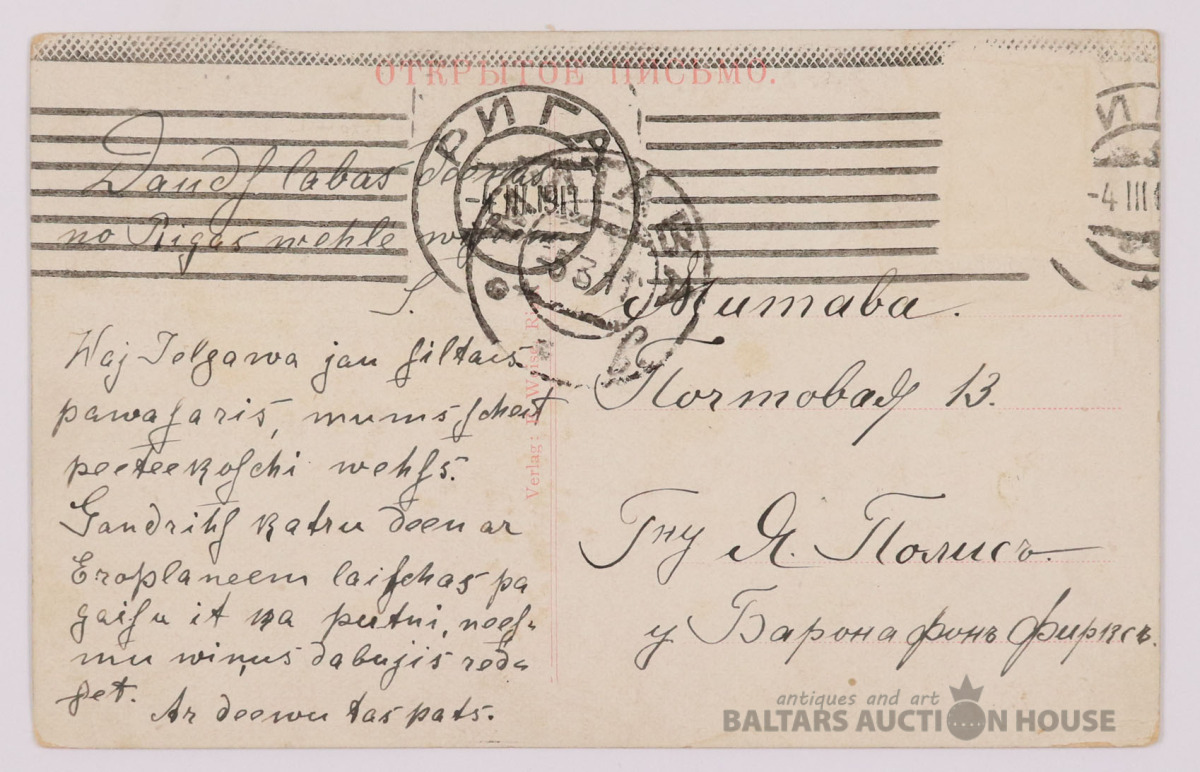 ОТКРЫТОЕ ПИСЬМО.
РИГА
-4 III.1911
РИГА
-4 III 1
3 3 11
Daudſ labas deenas
no Rigas wehle
S.
Waj Jelgawa jau ſiltais
pawaſaris, mums ſcheit
peeteekoſchi wehſs.
Gandrihſ katru deen ar
Eroplaneem laiſchas pa
gaiſu it ka putni, neeſ-
mu wiņus dabujis redſ
ſet.
Ar deewu tas pats.
Митава.
Почтовая 13.
Гну Я. Полисъ
у Барона фонъ Фирксъ.
Verlag:
antiques and art
BALTARS AUCTION HOUSE